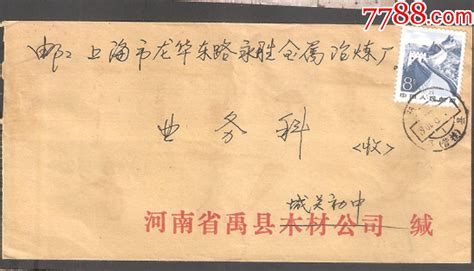 7788.com
邮 上海市龙华东路永胜金属冶炼厂
8分
中国人民邮政
业务科 (收)
城关初中
河南省禹县木材公司 缄